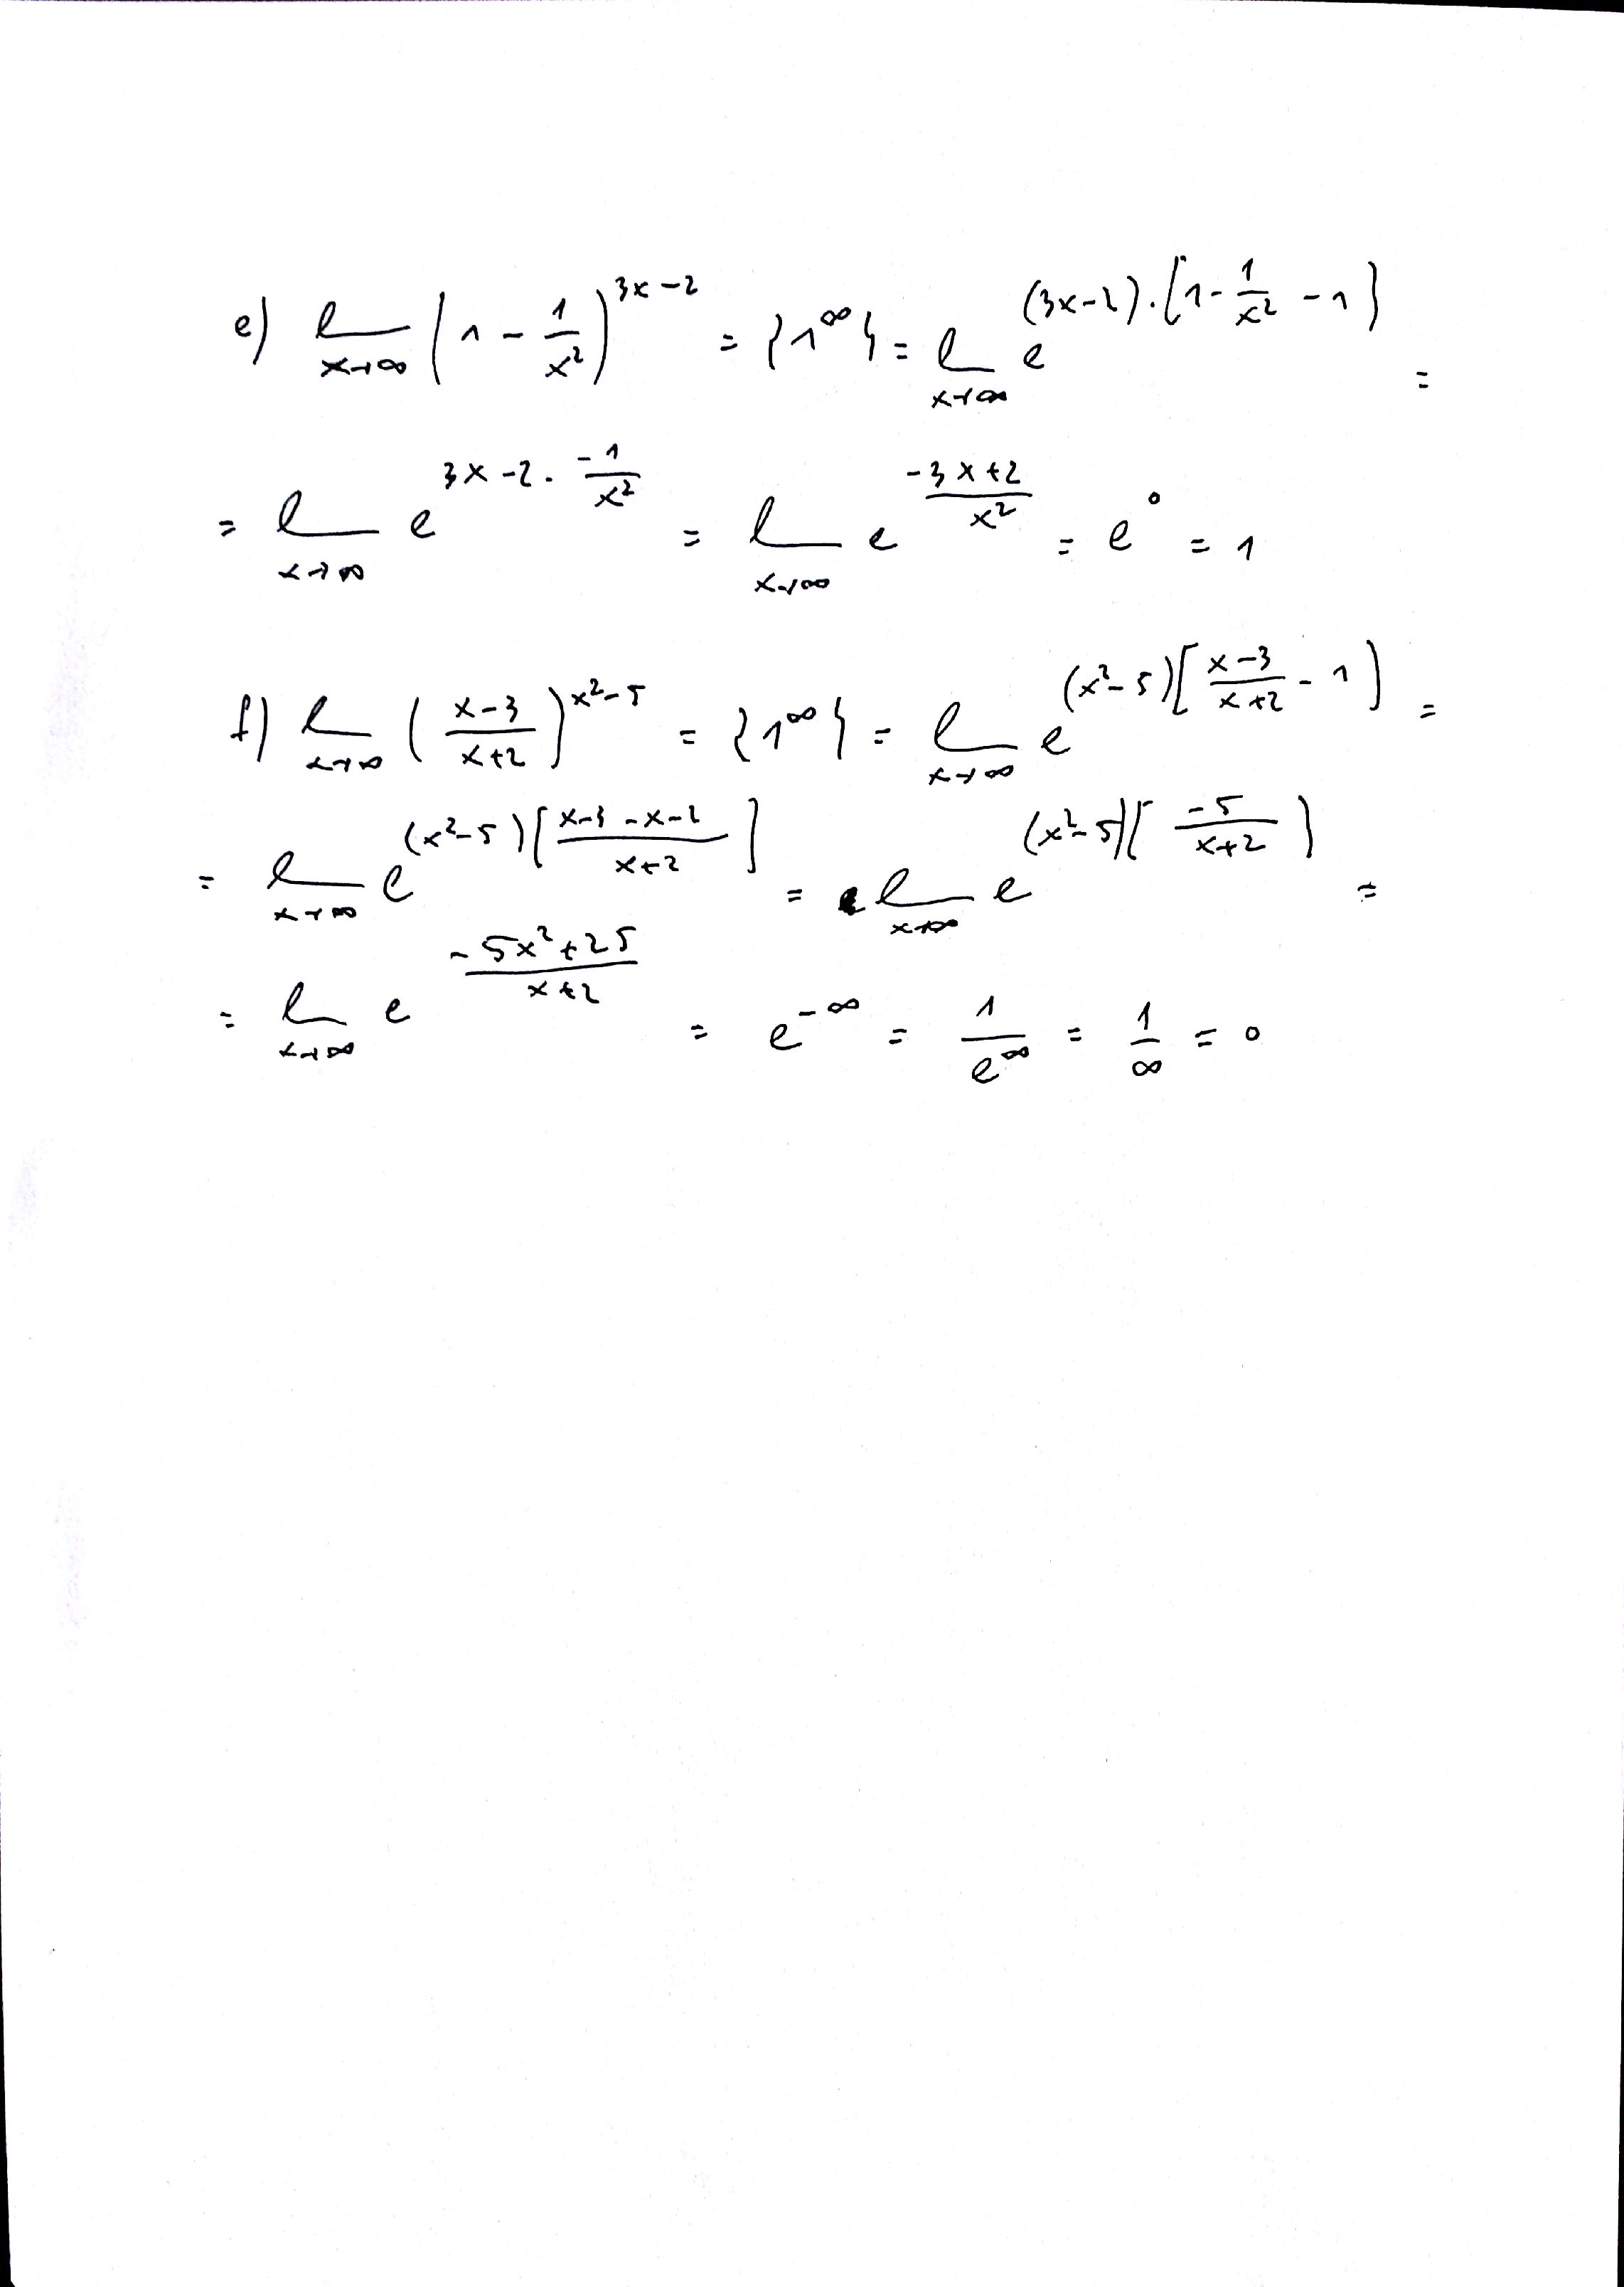 e) lim x→∞ (1 - 1/x²)^(3x-2) = {1^∞} = lim x→∞ e^((3x-2)·[1 - 1/x² - 1]) =
= lim x→∞ e^(3x-2 · -1/x²) = lim x→∞ e^((-3x+2)/x²) = e^0 = 1
f) lim x→∞ ((x-3)/(x+2))^(x²-5) = {1^∞} = lim x→∞ e^((x²-5)[(x-3)/(x+2) - 1]) =
= lim x→∞ e^((x²-5)[(x-3-x-2)/(x+2)]) = lim x→∞ e^((x²-5)[-5/(x+2)]) =
= lim x→∞ e^((-5x²+25)/(x+2)) = e^(-∞) = 1/e^∞ = 1/∞ = 0